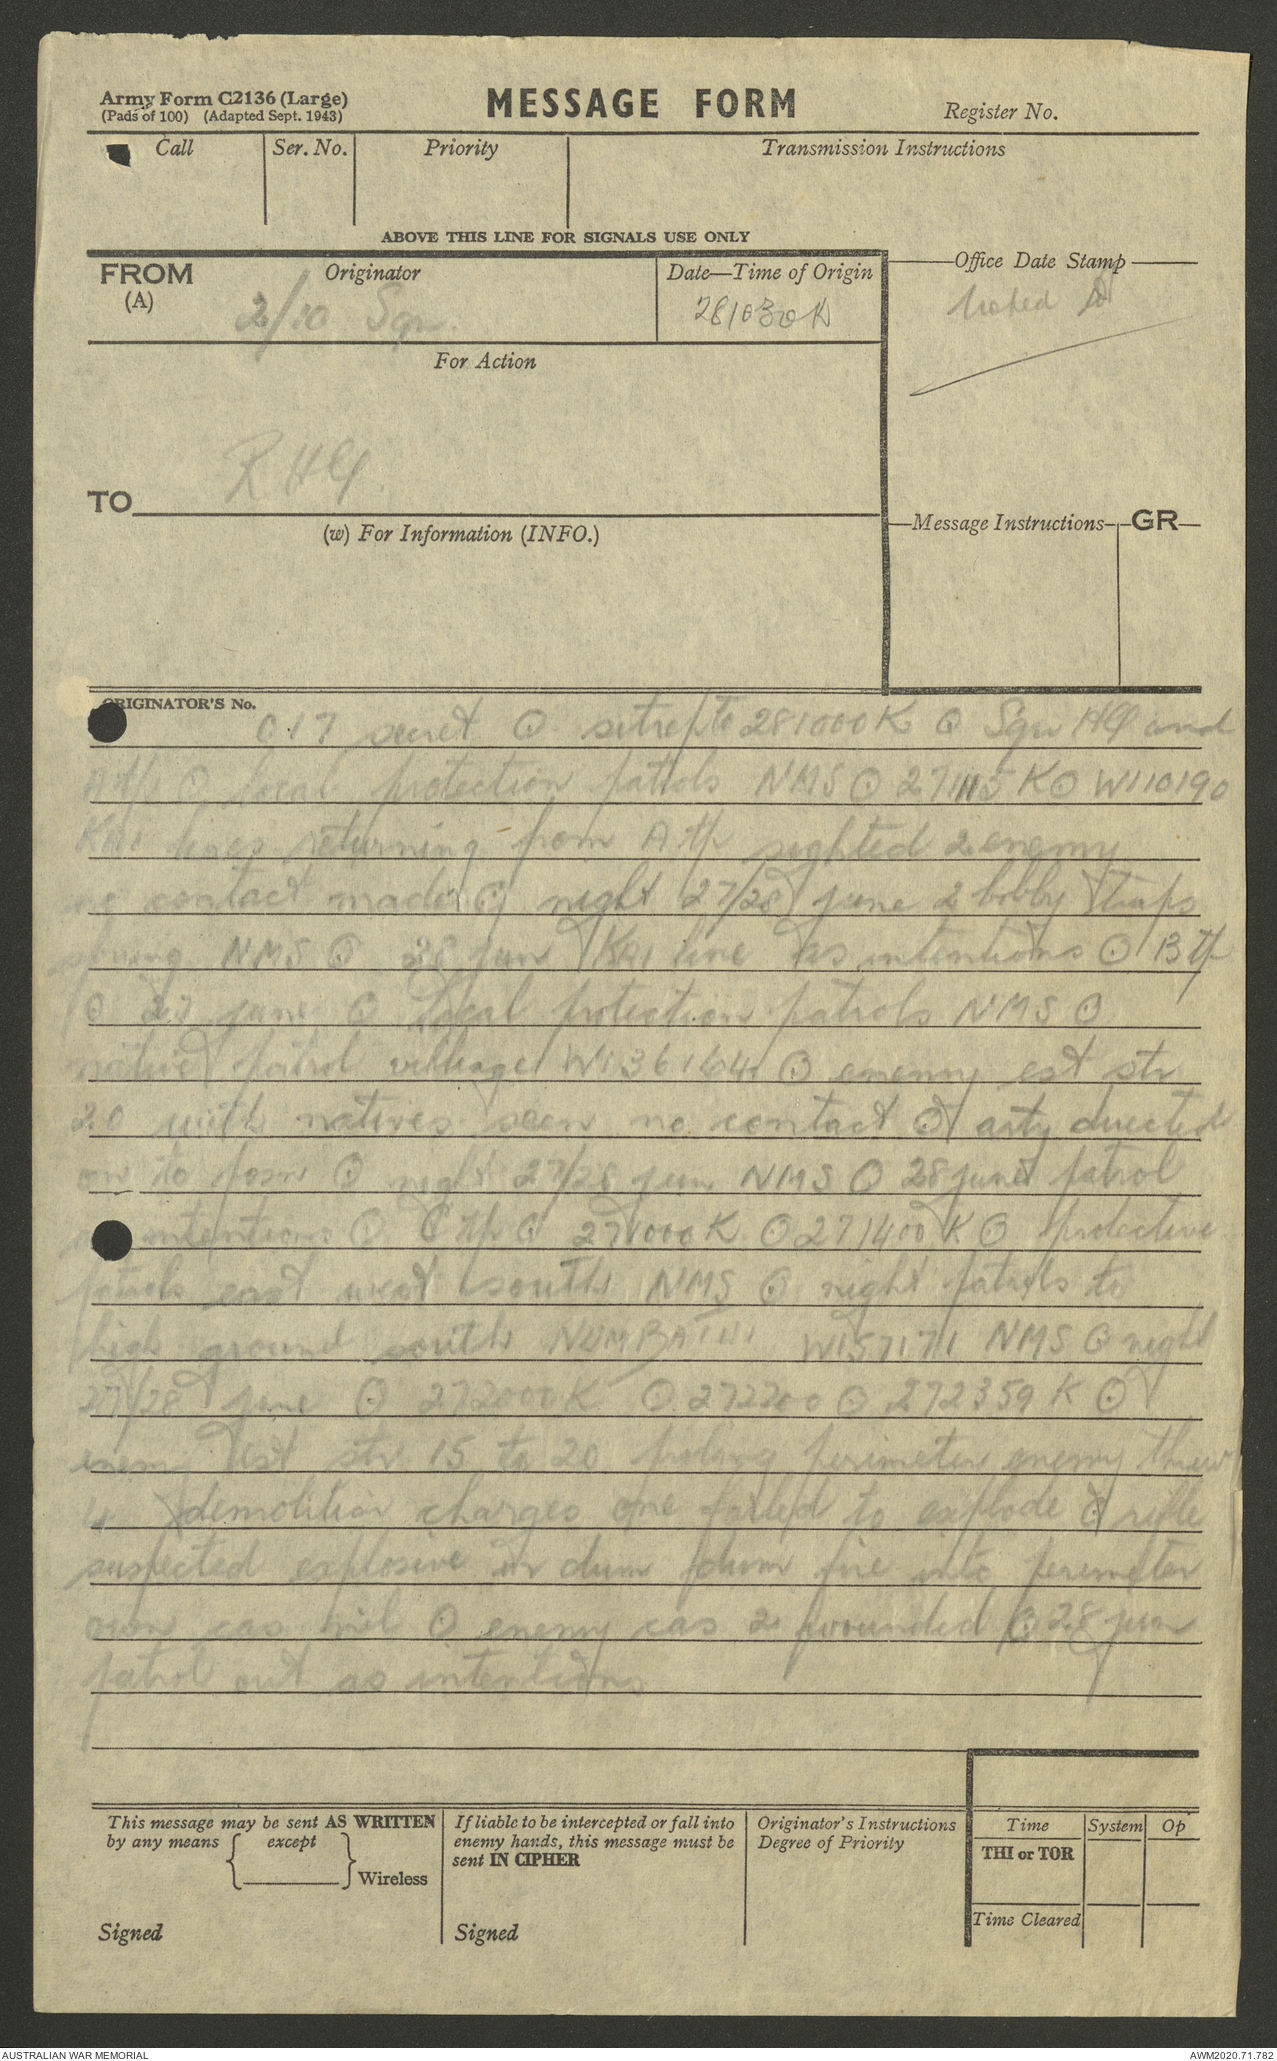 Army Form C2136 (Large)
(Pads of 100) (Adapted Sept. 1943)
MESSAGE FORM
Register No.
Call
Ser. No.
Priority
Transmission Instructions
ABOVE THIS LINE FOR SIGNALS USE ONLY
FROM
(A)
Originator
2/10 Sqn.
Date—Time of Origin
281030K
Office Date Stamp
For Action
TO
RHQ
(w) For Information (INFO.)
Message Instructions
GR
ORIGINATOR'S No.
017 secret ⊙ sitrep to 281000K ⊙ Sqn HQ and
A tp ⊙ local protection patrols NMS ⊙ 271115K ⊙ W110190
returning from A tp sighted 2 enemy
no contact made ⊙ night 27/28 June 2 booby traps
NMS ⊙ 28 Jun line as intentions ⊙ B tp
⊙ 27 June ⊙ local protection patrols NMS ⊙
native patrol village W136164 ⊙ enemy est str
20 with natives seen no contact ⊙ arty directed
on to posn ⊙ night 27/28 Jun NMS ⊙ 28 June patrol
intentions ⊙ C tp ⊙ 271000K ⊙ 271400K ⊙ protective
patrols east west south NMS ⊙ night patrols to
high ground south W157171 NMS ⊙ night
27/28 June ⊙ 272000K ⊙ 272200 ⊙ 272359K ⊙
enemy est str 15 to 20 probing perimeter enemy threw
4 demolition charges one failed to explode ⊙ rifle
suspected explosive or dum dum fire into perimeter
own cas nil ⊙ enemy cas 2 wounded ⊙ 28 Jun
patrol out as intentions
This message may be sent AS WRITTEN
by any means { except } Wireless
Signed
If liable to be intercepted or fall into
enemy hands, this message must be
sent IN CIPHER
Signed
Originator's Instructions
Degree of Priority
Time
System
Op
THI or TOR
Time Cleared
AUSTRALIAN WAR MEMORIAL
AWM2020.71.782